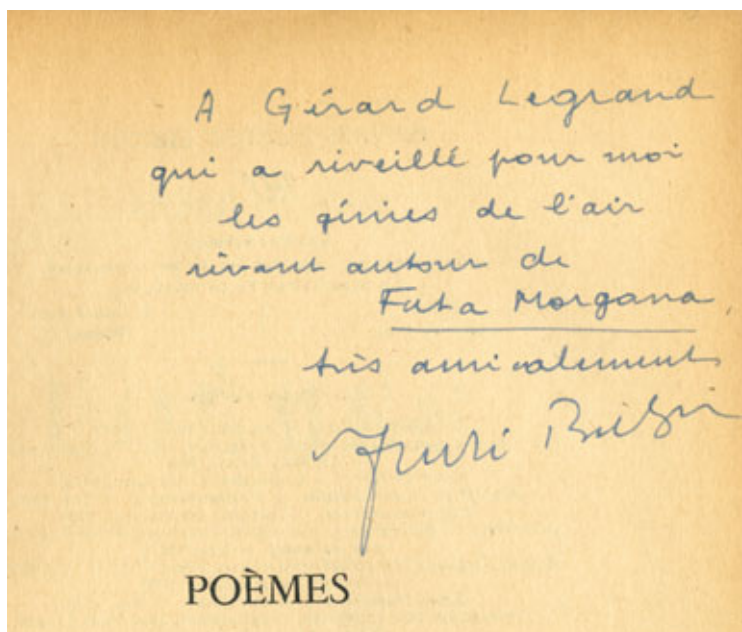 A Gérard Legrand
qui a réveillé pour moi
les génies de l'air
rêvant autour de
Fata Morgana,
très amicalement
André Breton
POÈMES